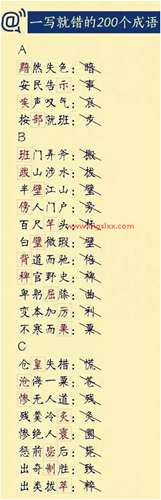 @ 一写就错的200个成语
A
黯然失色:暗
安民告示:事
唉声叹气:哀
按部就班:步
B
班门弄斧:搬
跋山涉水:拔
半壁江山:璧
傍人门户:旁
百尺竿头:杆
白璧微瑕:壁
背道而驰:
稗官野史:
卑躬屈膝:曲
变本加厉:利
不寒而栗:粟
C
仓皇失措:慌
沧海一粟:苍
惨无人道:残
残羹冷炙:灸
惨绝人寰:圜
惩前毖后:
出奇制胜:致
出类拔萃:粹